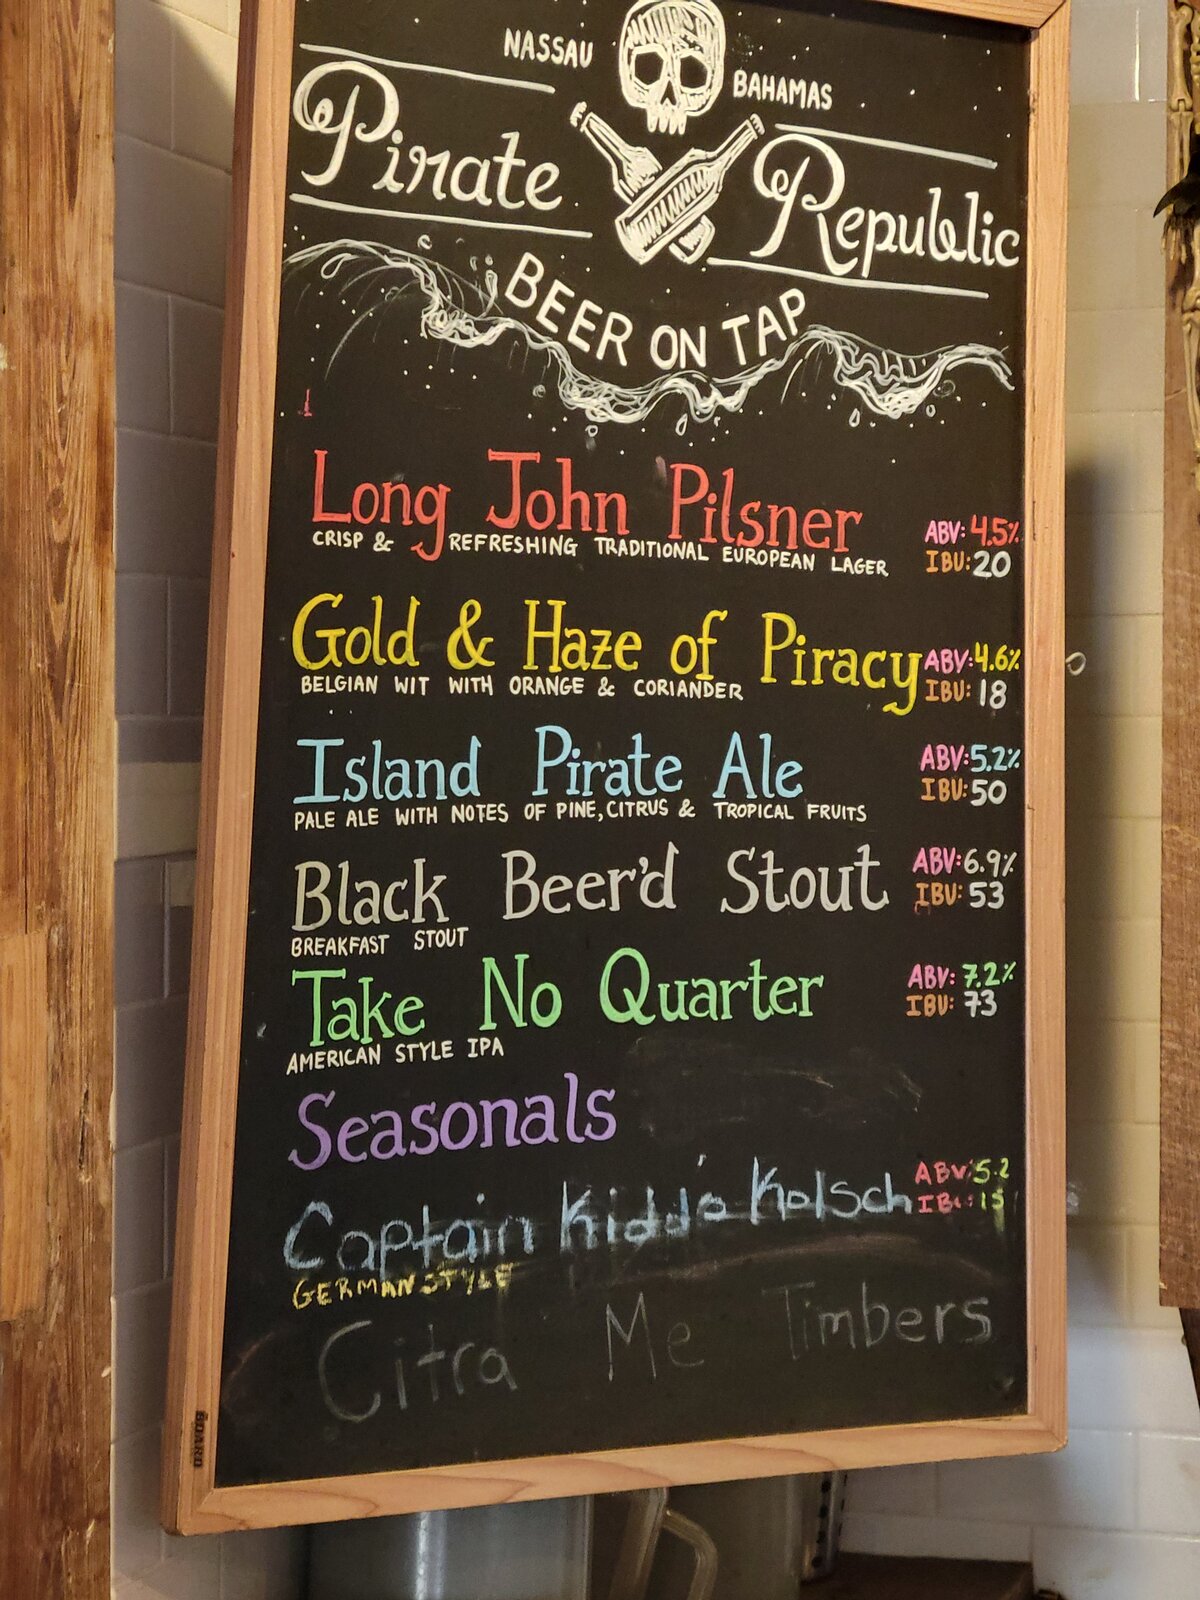 NASSAU BAHAMAS
Pirate Republic
BEER ON TAP
Long John Pilsner ABV: 4.5%
CRISP & REFRESHING TRADITIONAL EUROPEAN LAGER IBU: 20
Gold & Haze of Piracy ABV: 4.6%
BELGIAN WIT WITH ORANGE & CORIANDER IBU: 18
Island Pirate Ale ABV: 5.2%
PALE ALE WITH NOTES OF PINE, CITRUS & TROPICAL FRUITS IBU: 50
Black Beer'd Stout ABV: 6.9%
BREAKFAST STOUT IBU: 53
Take No Quarter ABV: 7.2%
AMERICAN STYLE IPA IBU: 73
Seasonals
Captain Kidd's Kolsch ABV: 5.2
GERMAN STYLE IBU: 15
Citra Me Timbers
BOARD